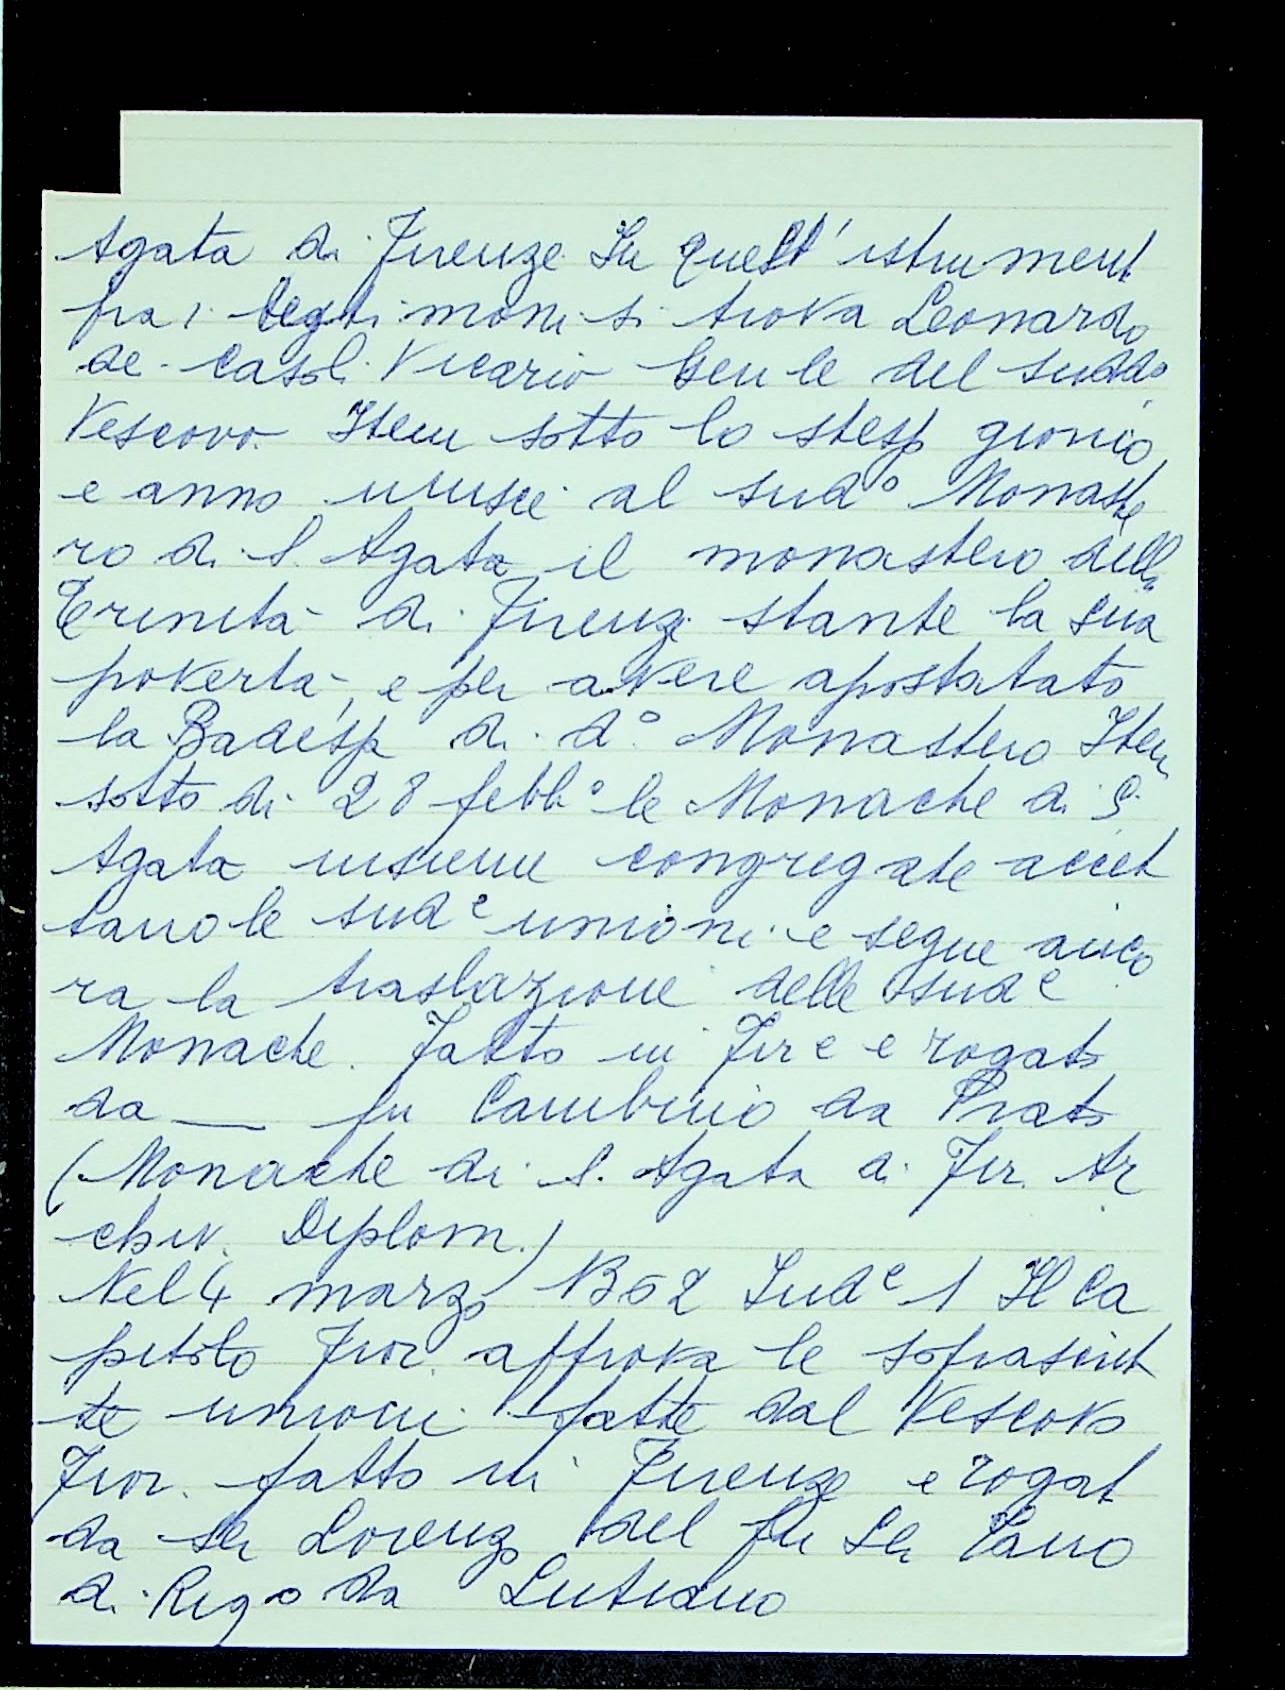 Agata di Firenze In quest'istrument
fra i testimoni si trova Leonardo
de Casoli Vicario Genle del sudd°
Vescovo. Item sotto lo stesso giorno
e anno unisce al sud° Monaste
ro di S. Agata il monastero della
Trinita di Firenze stante la sua
poverta, e per avere apostatato
la Badessa di d° Monastero Item
sotto di 28 febb° le Monache di S.
Agata insieme congregate accet
tano le sud e unioni e segue anco
ra la traslazione delle sud e
Monache. Fatto in Fire e rogato
da — fu Cambino da Prato
(Monache di S. Agata di Fir. Ar
chiv. Diplom.)
Nel 4 marzo 1362 Ind e 1 Il Ca
pitolo Fior. approva le soprascrit
te unioni fatte dal Vescovo
Fior. fatto in Firenze e rogat
da ser Lorenzo del fu Ser Tano
di Rigo da Lutiano